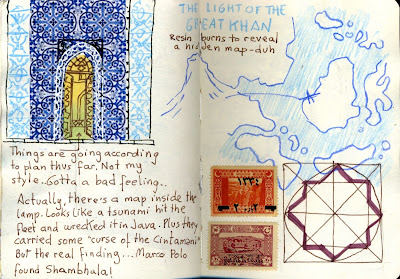 Things are going according
to plan thus far. Not my
style.. Gotta a bad feeling..
Actually, there's a map inside the
lamp. Looks like a tsunami hit the
fleet and wrecked it in Java. Plus they
carried some "curse of the Cintamani"
But the real finding... Marco Polo
found Shambhala!
THE LIGHT OF THE
GREAT KHAN
Resin burns to reveal
a hidden map-duh